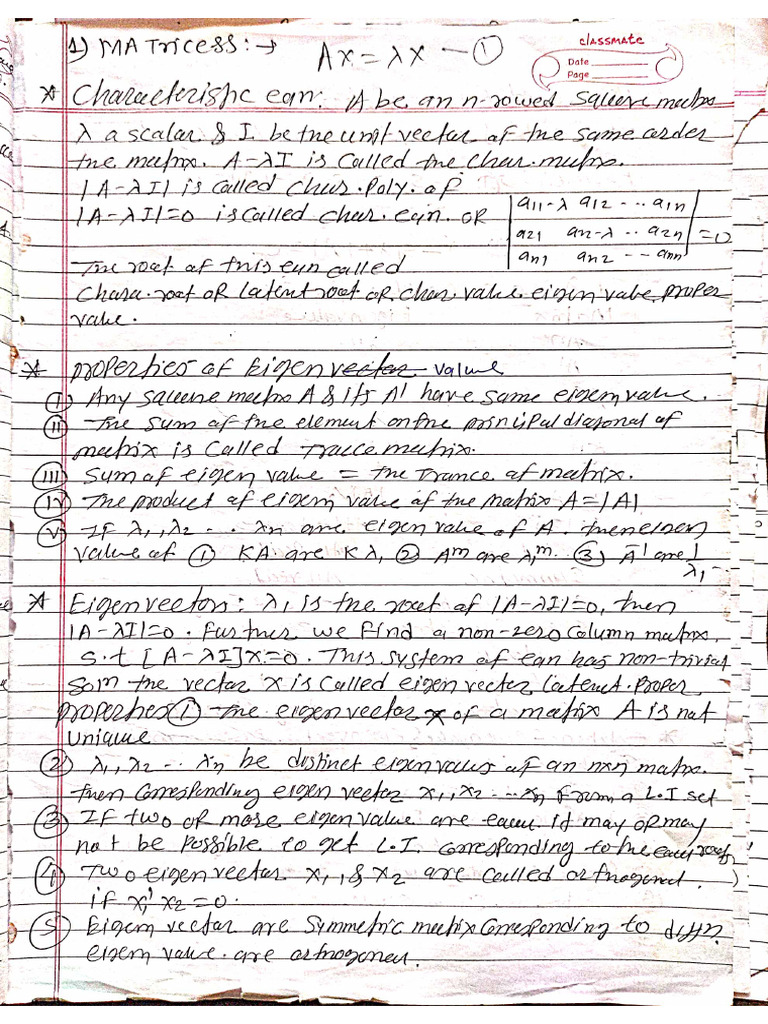 1) MATricess:→ AX = λX — ①
classmate
Date
Page
* Characteristic eqn: A be an n-rowed square matrix
λ a scalar & I be the unit vector of the same order
the matrix. A-λI is called the char. matrix.
|A-λI| is called char. Poly. of
|A-λI|=0 is called char. eqn. OR
|a11-λ a12 -... a1n|
|a21 a22-λ .. a2n| = 0
|an1 an2 --- ann|
The root of this eqn called
Chara. root OR latent root OR char. value eigen value proper
value.
* properties of Eigen vector value
(i) Any square matrix A & its A' have same eigen value.
(ii) The sum of the element on the principal diagonal of
matrix is called Tracce matrix.
(iii) Sum of eigen value = the Trance of matrix.
(iv) The product of eigen value of the matrix A = |A|
(v) If λ1, λ2 ... λn are eigen value of A. then eigen
value of ① KA are Kλ, ② A^m are λ1^m. ③ A^-1 are 1/λ1 -
* Eigen vectors: λ1 is the root of |A-λI|=0, then
|A-λI|=0. Further we find a non-zero column matrix.
s.t [A-λI]X=0. This system of eqn has non-trivial
soln the vector X is called eigen vector latent. proper
properties ① The eigen vector X of a matrix A is not
unique
② λ1, λ2 ... λn be distinct eigen values of an nxn matrix.
then corresponding eigen vector x1, x2 ... xn from a L.I set
③ If two or more eigen value are equal it may or may
not be possible to get L.I. corresponding to the equal roots
④ Two eigen vector x1, & x2 are called orthogonal.
if x1' x2 = 0.
⑤ Eigen vector are symmetric matrix corresponding to diffn.
eigen value are orthogonal.